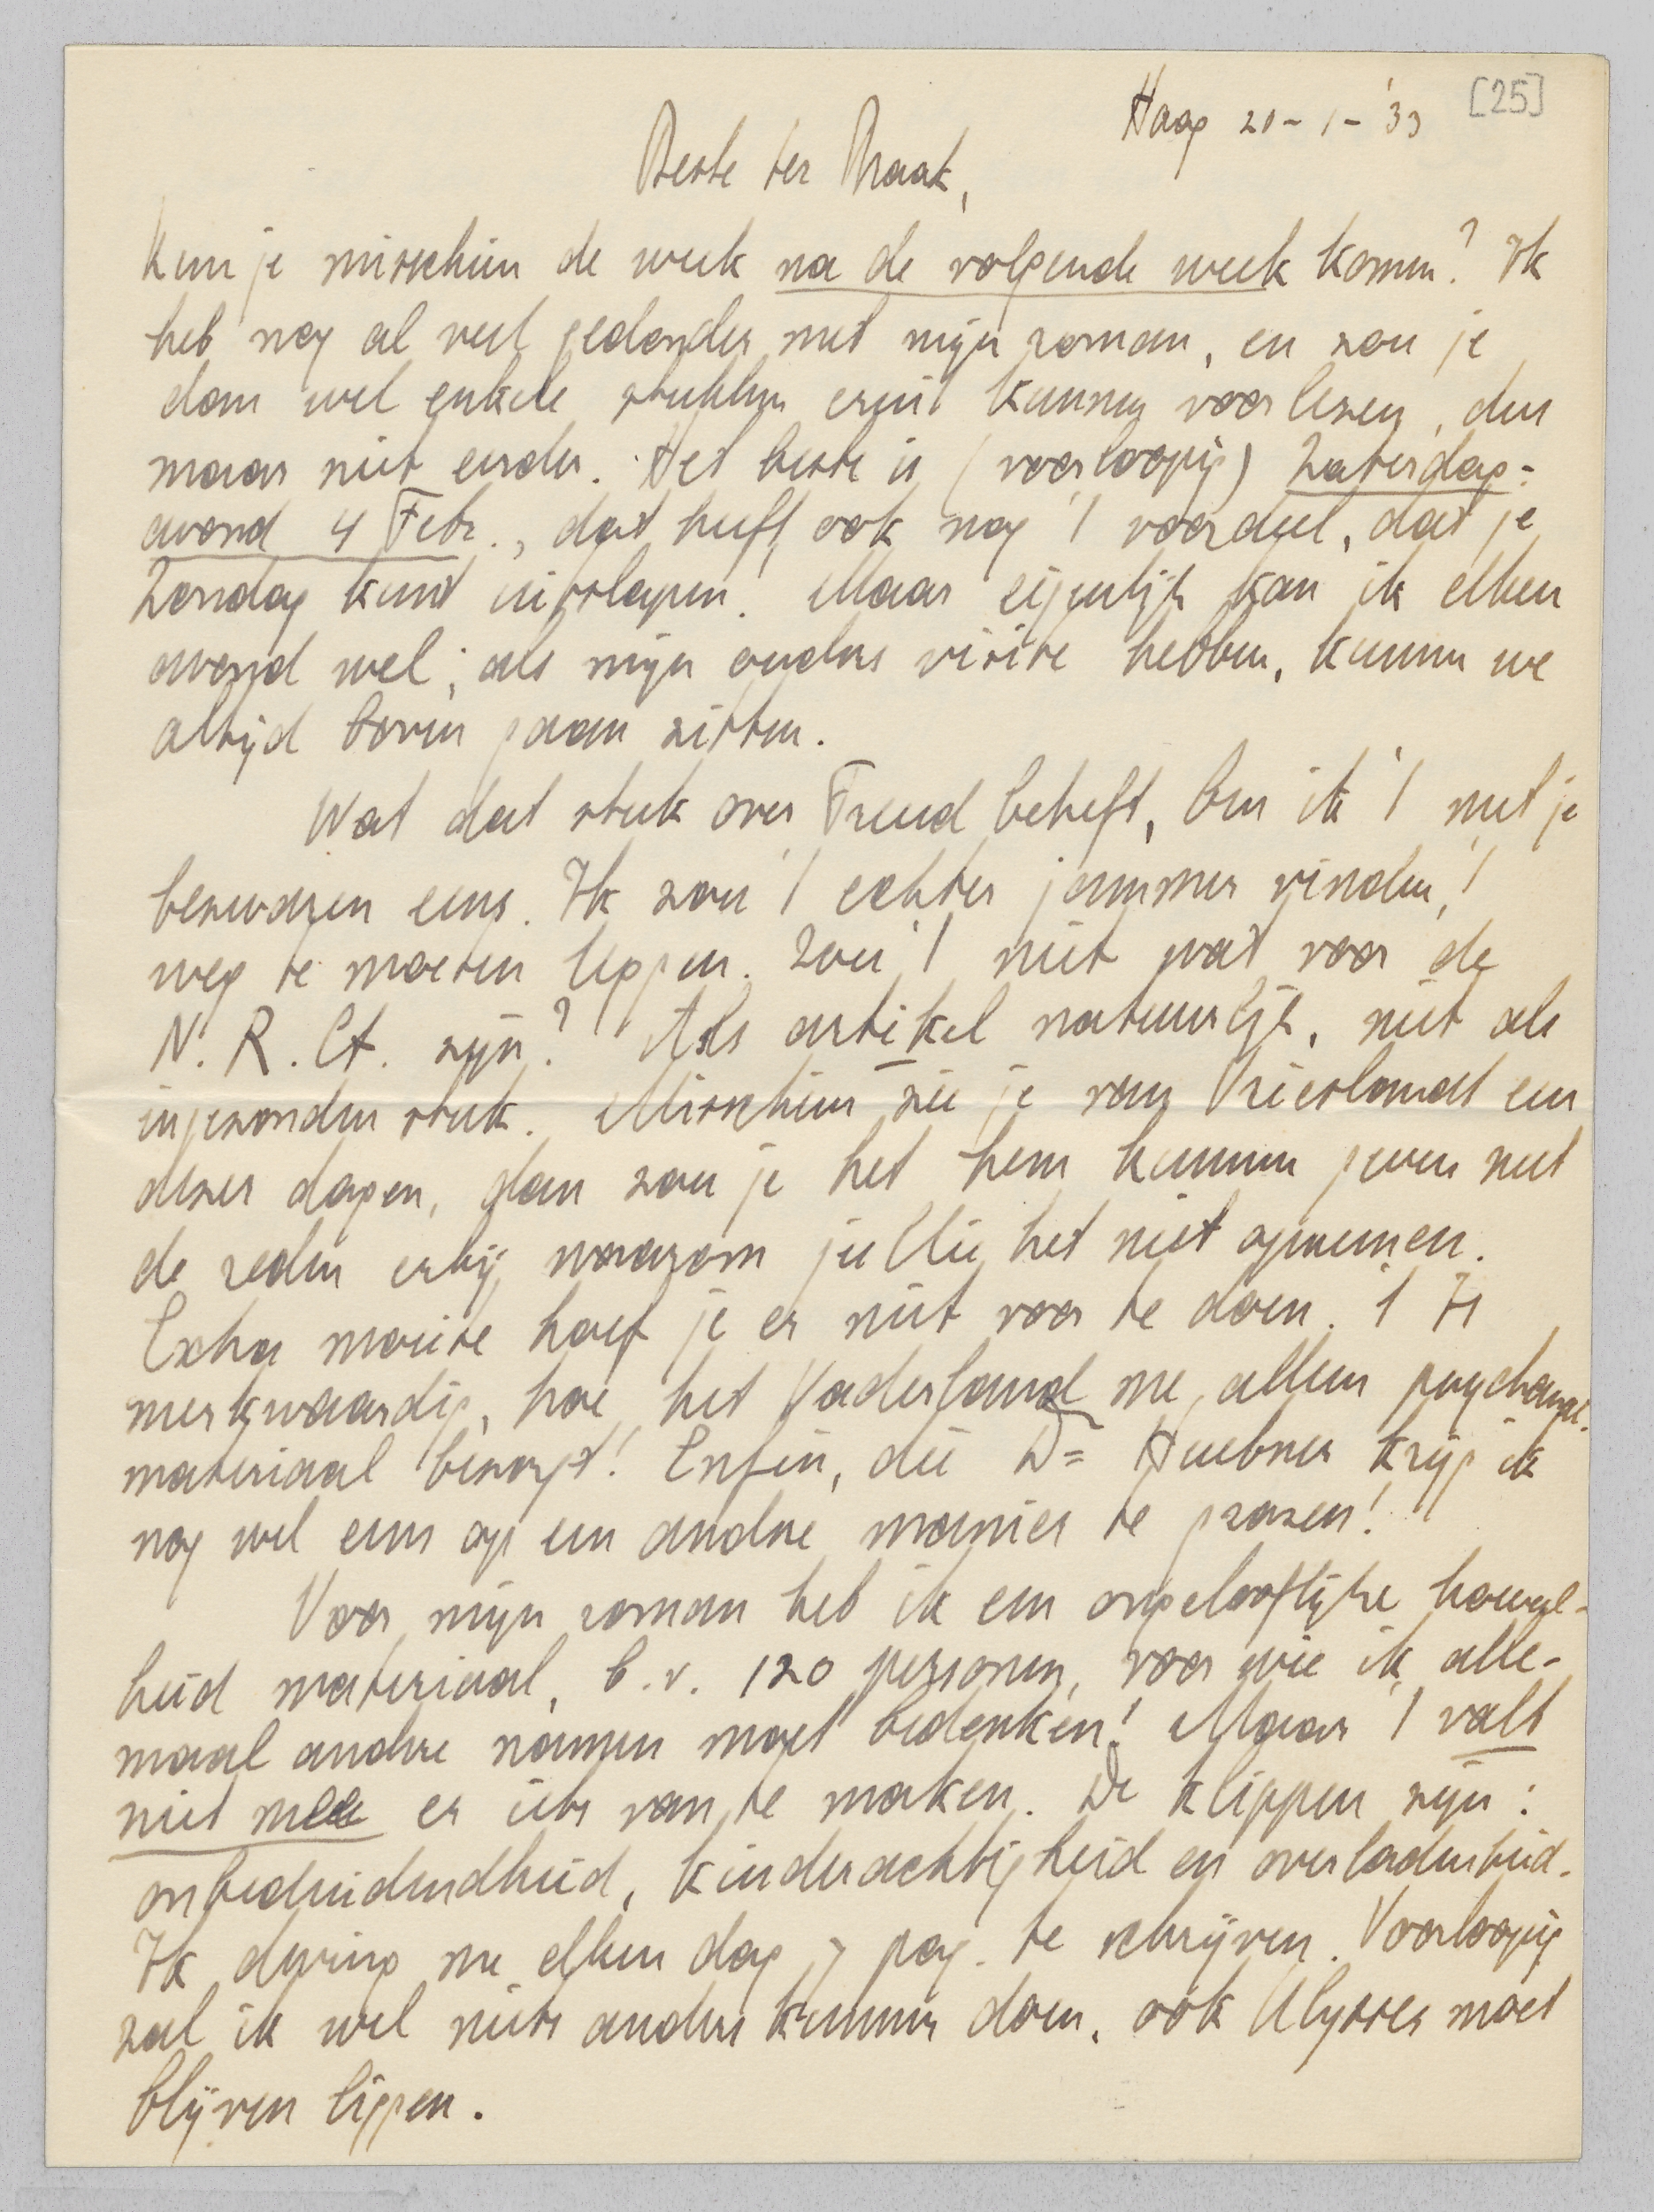 Haag 20-1-'33 [25]
Beste ter Braak,
Kun je misschien de week na de volgende week komen? Ik
heb nog al veel gedonder met mijn roman, en zou je
dan wel enkele stukken eruit kunnen voorlezen, dus
maar niet eerder. Het beste is (voorloopig) Zaterdag-
avond 4 Febr., dat heeft ook nog 't voordeel, dat je
Zondag kunt uitslapen! Maar eigenlijk kan ik elken
avond wel; als mijn ouders visite hebben, kunnen we
altijd boven gaan zitten.
Wat dat stuk over Freud betreft, ben ik 't met je
bezwaren eens. Ik zou 't echter jammer vinden, 't
weg te moeten leggen. Zou 't niet wat voor de
N. R. Ct. zijn? Als artikel natuurlijk, niet als
ingezonden stuk. Misschien zie je van Vriesland een
dezer dagen, dan zou je het hem kunnen geven met
de reden erbij waarom jullie het niet opnemen.
Extra moeite hoef je er niet voor te doen. 't Is
merkwaardig, hoe het Vaderland me alleen psychoanal.
materiaal bezorgt! Enfin, die Dr Huebner krijg ik
nog wel eens op een andere manier te grazen!
Voor mijn roman heb ik een ongelooflijke hoeveel-
heid materiaal, b.v. 120 personen, voor wie ik alle-
maal andere namen moet bedenken! Maar 't valt
niet mee er iets van te maken. De klippen zijn:
onbeduidendheid, kinderachtigheid en overladenheid.
Ik dwing me elken dag 7 pag. te schrijven. Voorloopig
zal ik wel niets anders kunnen doen, ook Ulysses moet
blijven liggen.